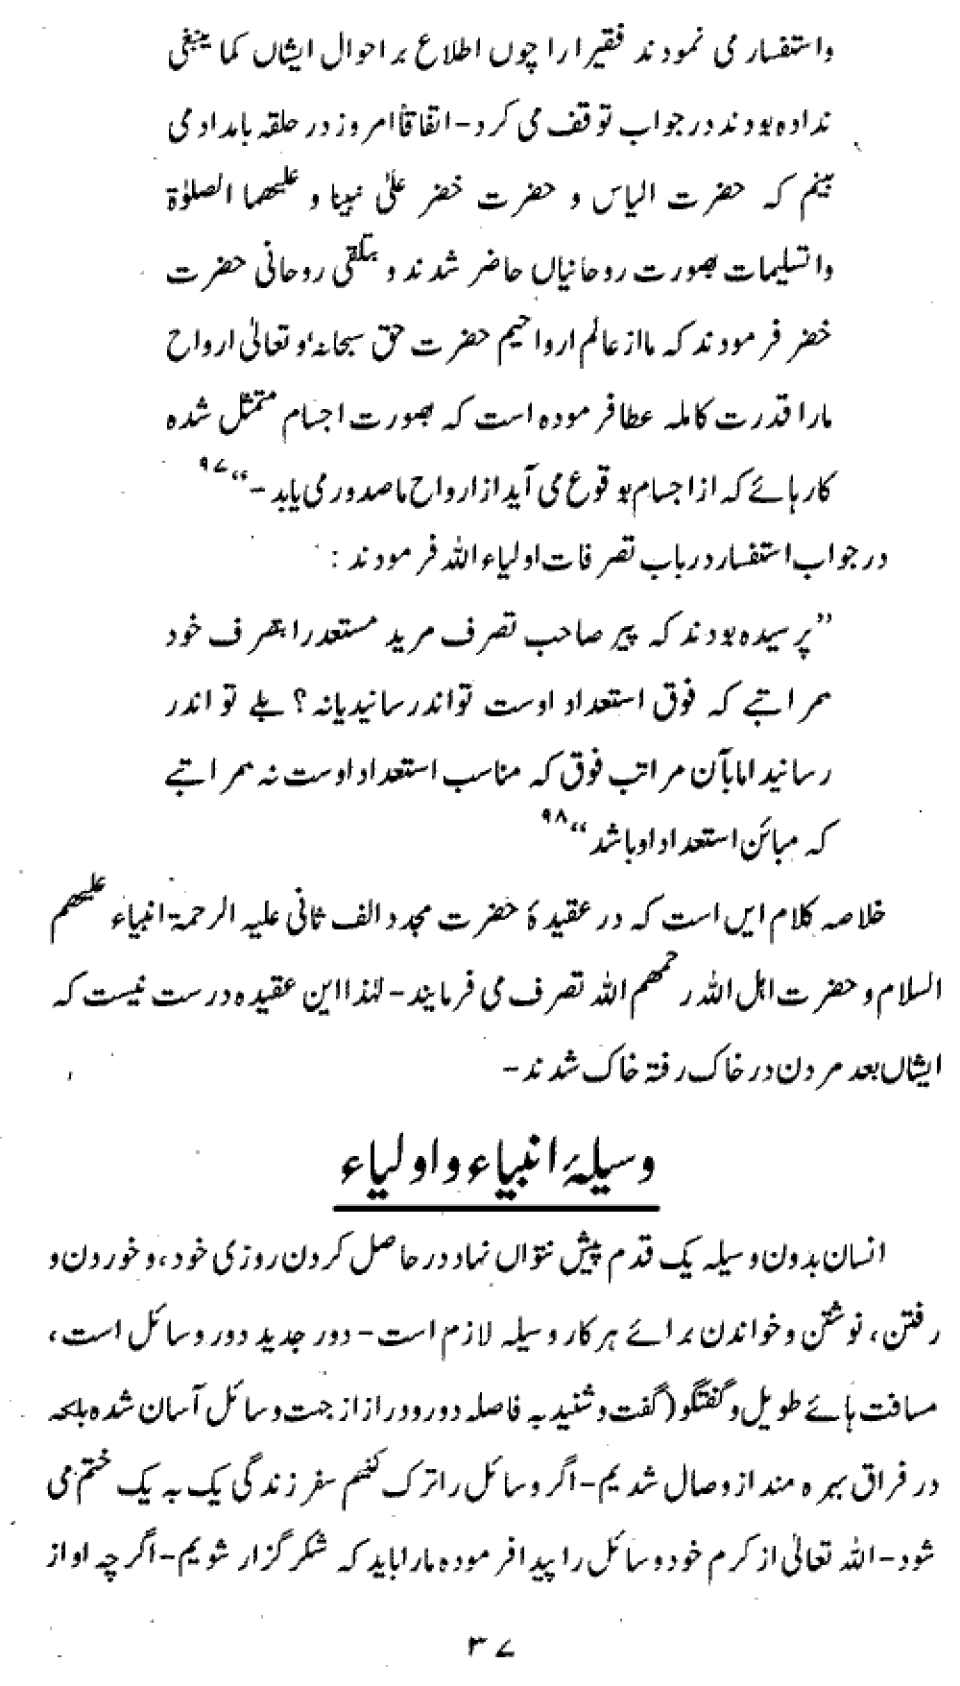 واستفسار می نمودند فقیر ارا چوں اطلاع بر احوال ایشاں کما ینبغی
ندادہ بودند در جواب توقف می کرد - اتفاقاً امروز در حلقہ بامداد می
بینم کہ حضرت الیاس و حضرت خضر علیٰ نبینا و علیھما الصلوٰۃ
والتسلیمات بصورت روحانیاں حاضر شدند و بتلقی روحانی حضرت
خضر فرمودند کہ ما از عالم ارواحیم حضرت حق سبحانہٗ و تعالیٰ ارواح
مارا قدرت کاملہ عطا فرمودہ است کہ بصورت اجسام متمثل شدہ
کارہائے کہ از اجسام بوقوع می آید از ارواح ما صدور می یابد - “ ۹۷
در جواب استفسار در باب تصرفات اولیاء اللہ فرمودند :
”پرسیدہ بودند کہ پیر صاحب تصرف مرید مستعد را بتصرف خود
بمراتبے کہ فوق استعداد اوست تواند رسانید یا نہ ؟ بلے تواند
رسانید اما بآن مراتب فوق کہ مناسب استعداد اوست نہ بمراتبے
کہ مبائن استعداد او باشد“ ۹۸
خلاصہ کلام ایں است کہ در عقیدۂ حضرت مجدد الف ثانی علیہ الرحمۃ انبیاء علیھم
السلام و حضرت اہل اللہ رحمھم اللہ تصرف می فرمایند - لہٰذا این عقیدہ درست نیست کہ
ایشاں بعد مردن در خاک رفتہ خاک شدند -
وسیلۂ انبیاء و اولیاء
انسان بدون وسیلہ یک قدم پیش نتواں نہاد در حاصل کردن روزی خود، و خوردن و
رفتن، نوشتن و خواندن برائے ہر کار وسیلہ لازم است - دور جدید دور وسائل است،
مسافت ہائے طویل و گفتگو (گفت و شنید بہ فاصلہ دور و دراز از جہت وسائل آسان شدہ بلکہ
در فراق بہرہ مند از وصال شدیم - اگر وسائل را ترک کنیم سفر زندگی یک بہ یک ختم می
شود - اللہ تعالیٰ از کرم خود وسائل را پیدا فرمودہ مارا باید کہ شکر گزار شویم - اگر چہ او از
۳۷